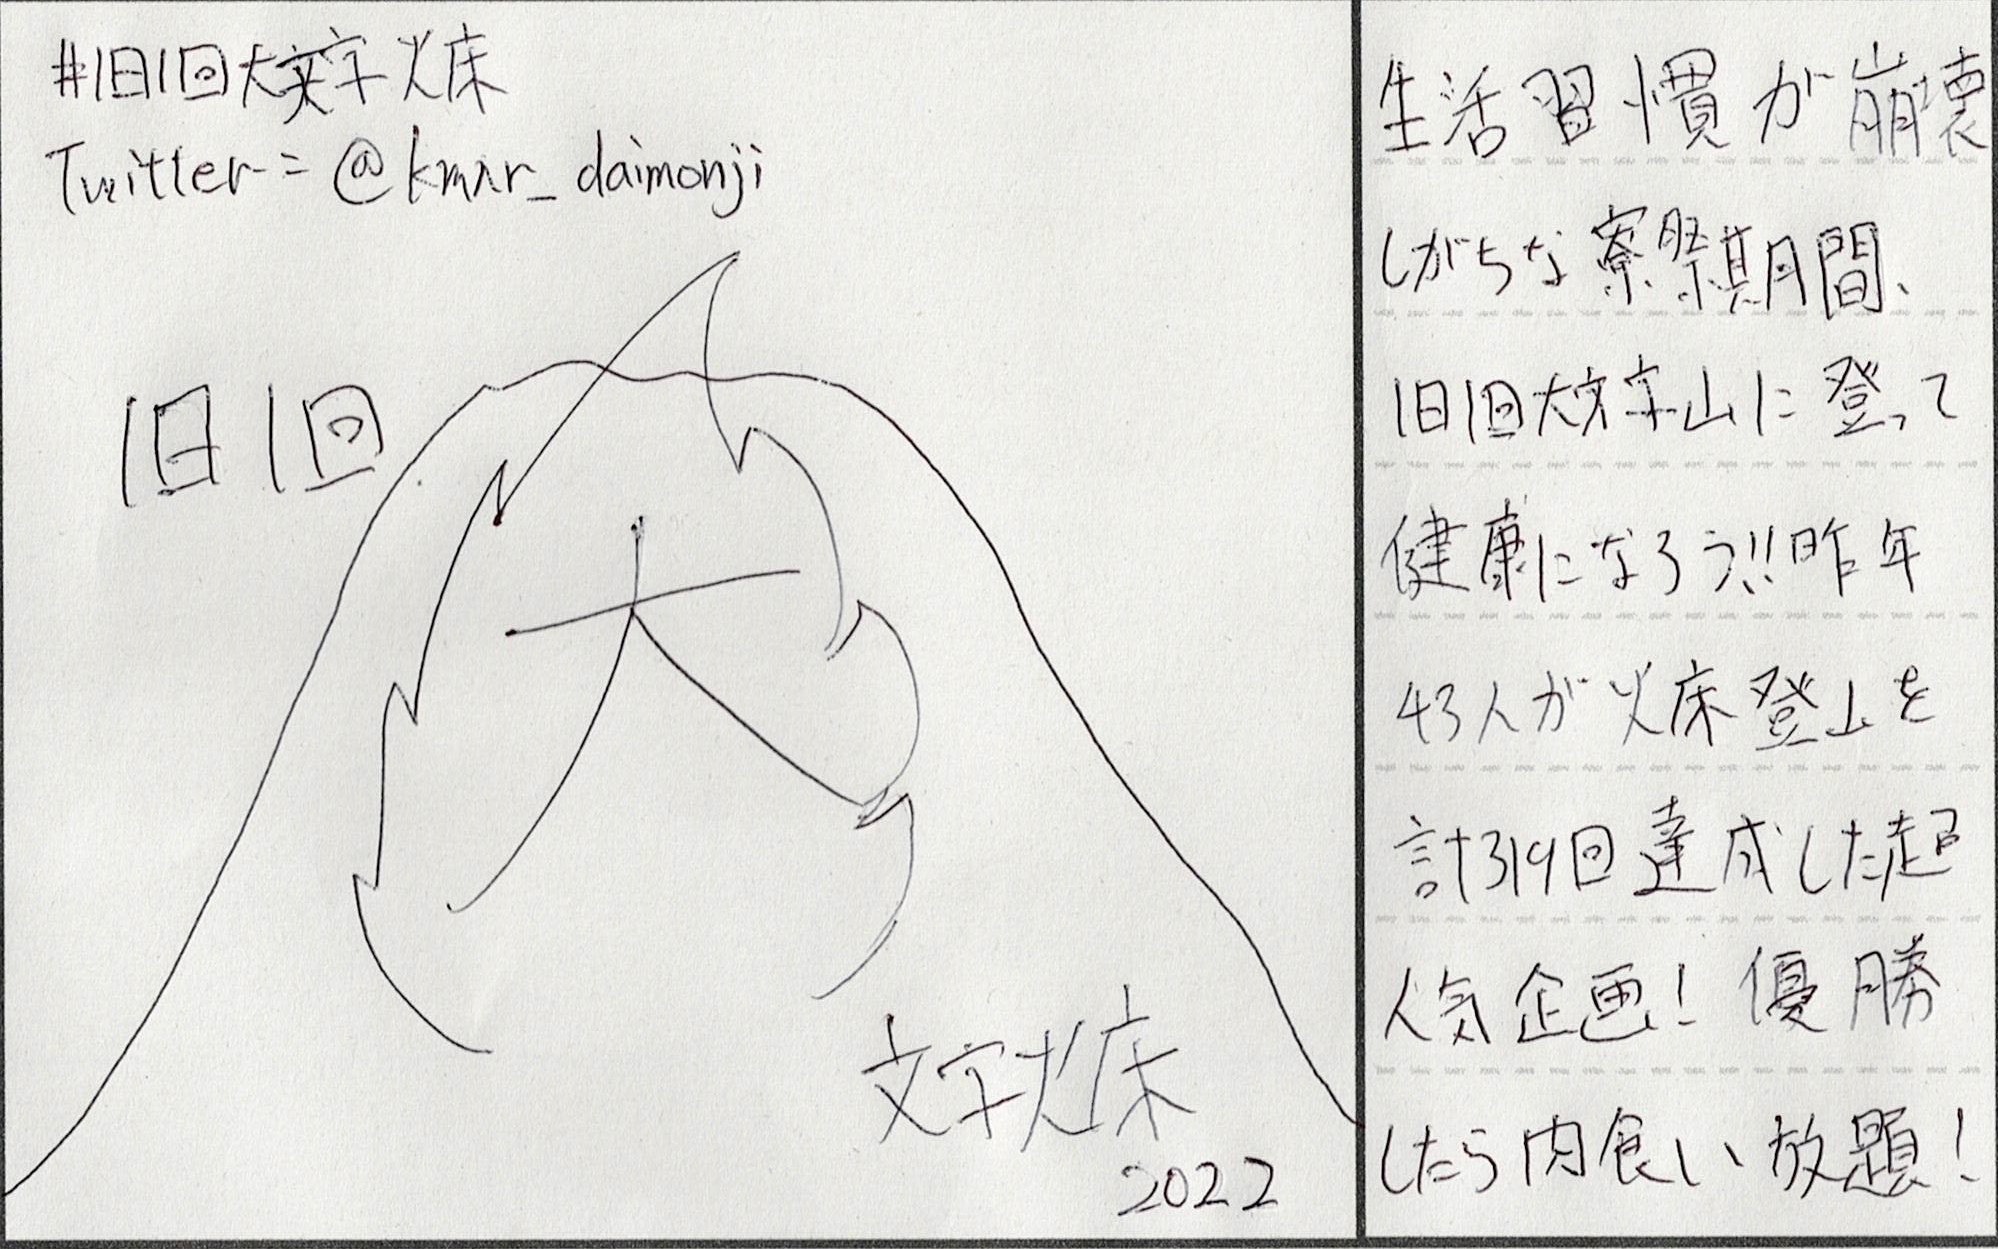 #1日1回大文字火床
Twitter = @kmnr_daimonji
1日1回
大
文字火床
2022
生活習慣が崩壊
しがちな寮祭期間、
1日1回大文字山に登って
健康になろう!!昨年
43人が火床登山を
計319回達成した超
人気企画！優勝
したら肉食い放題！